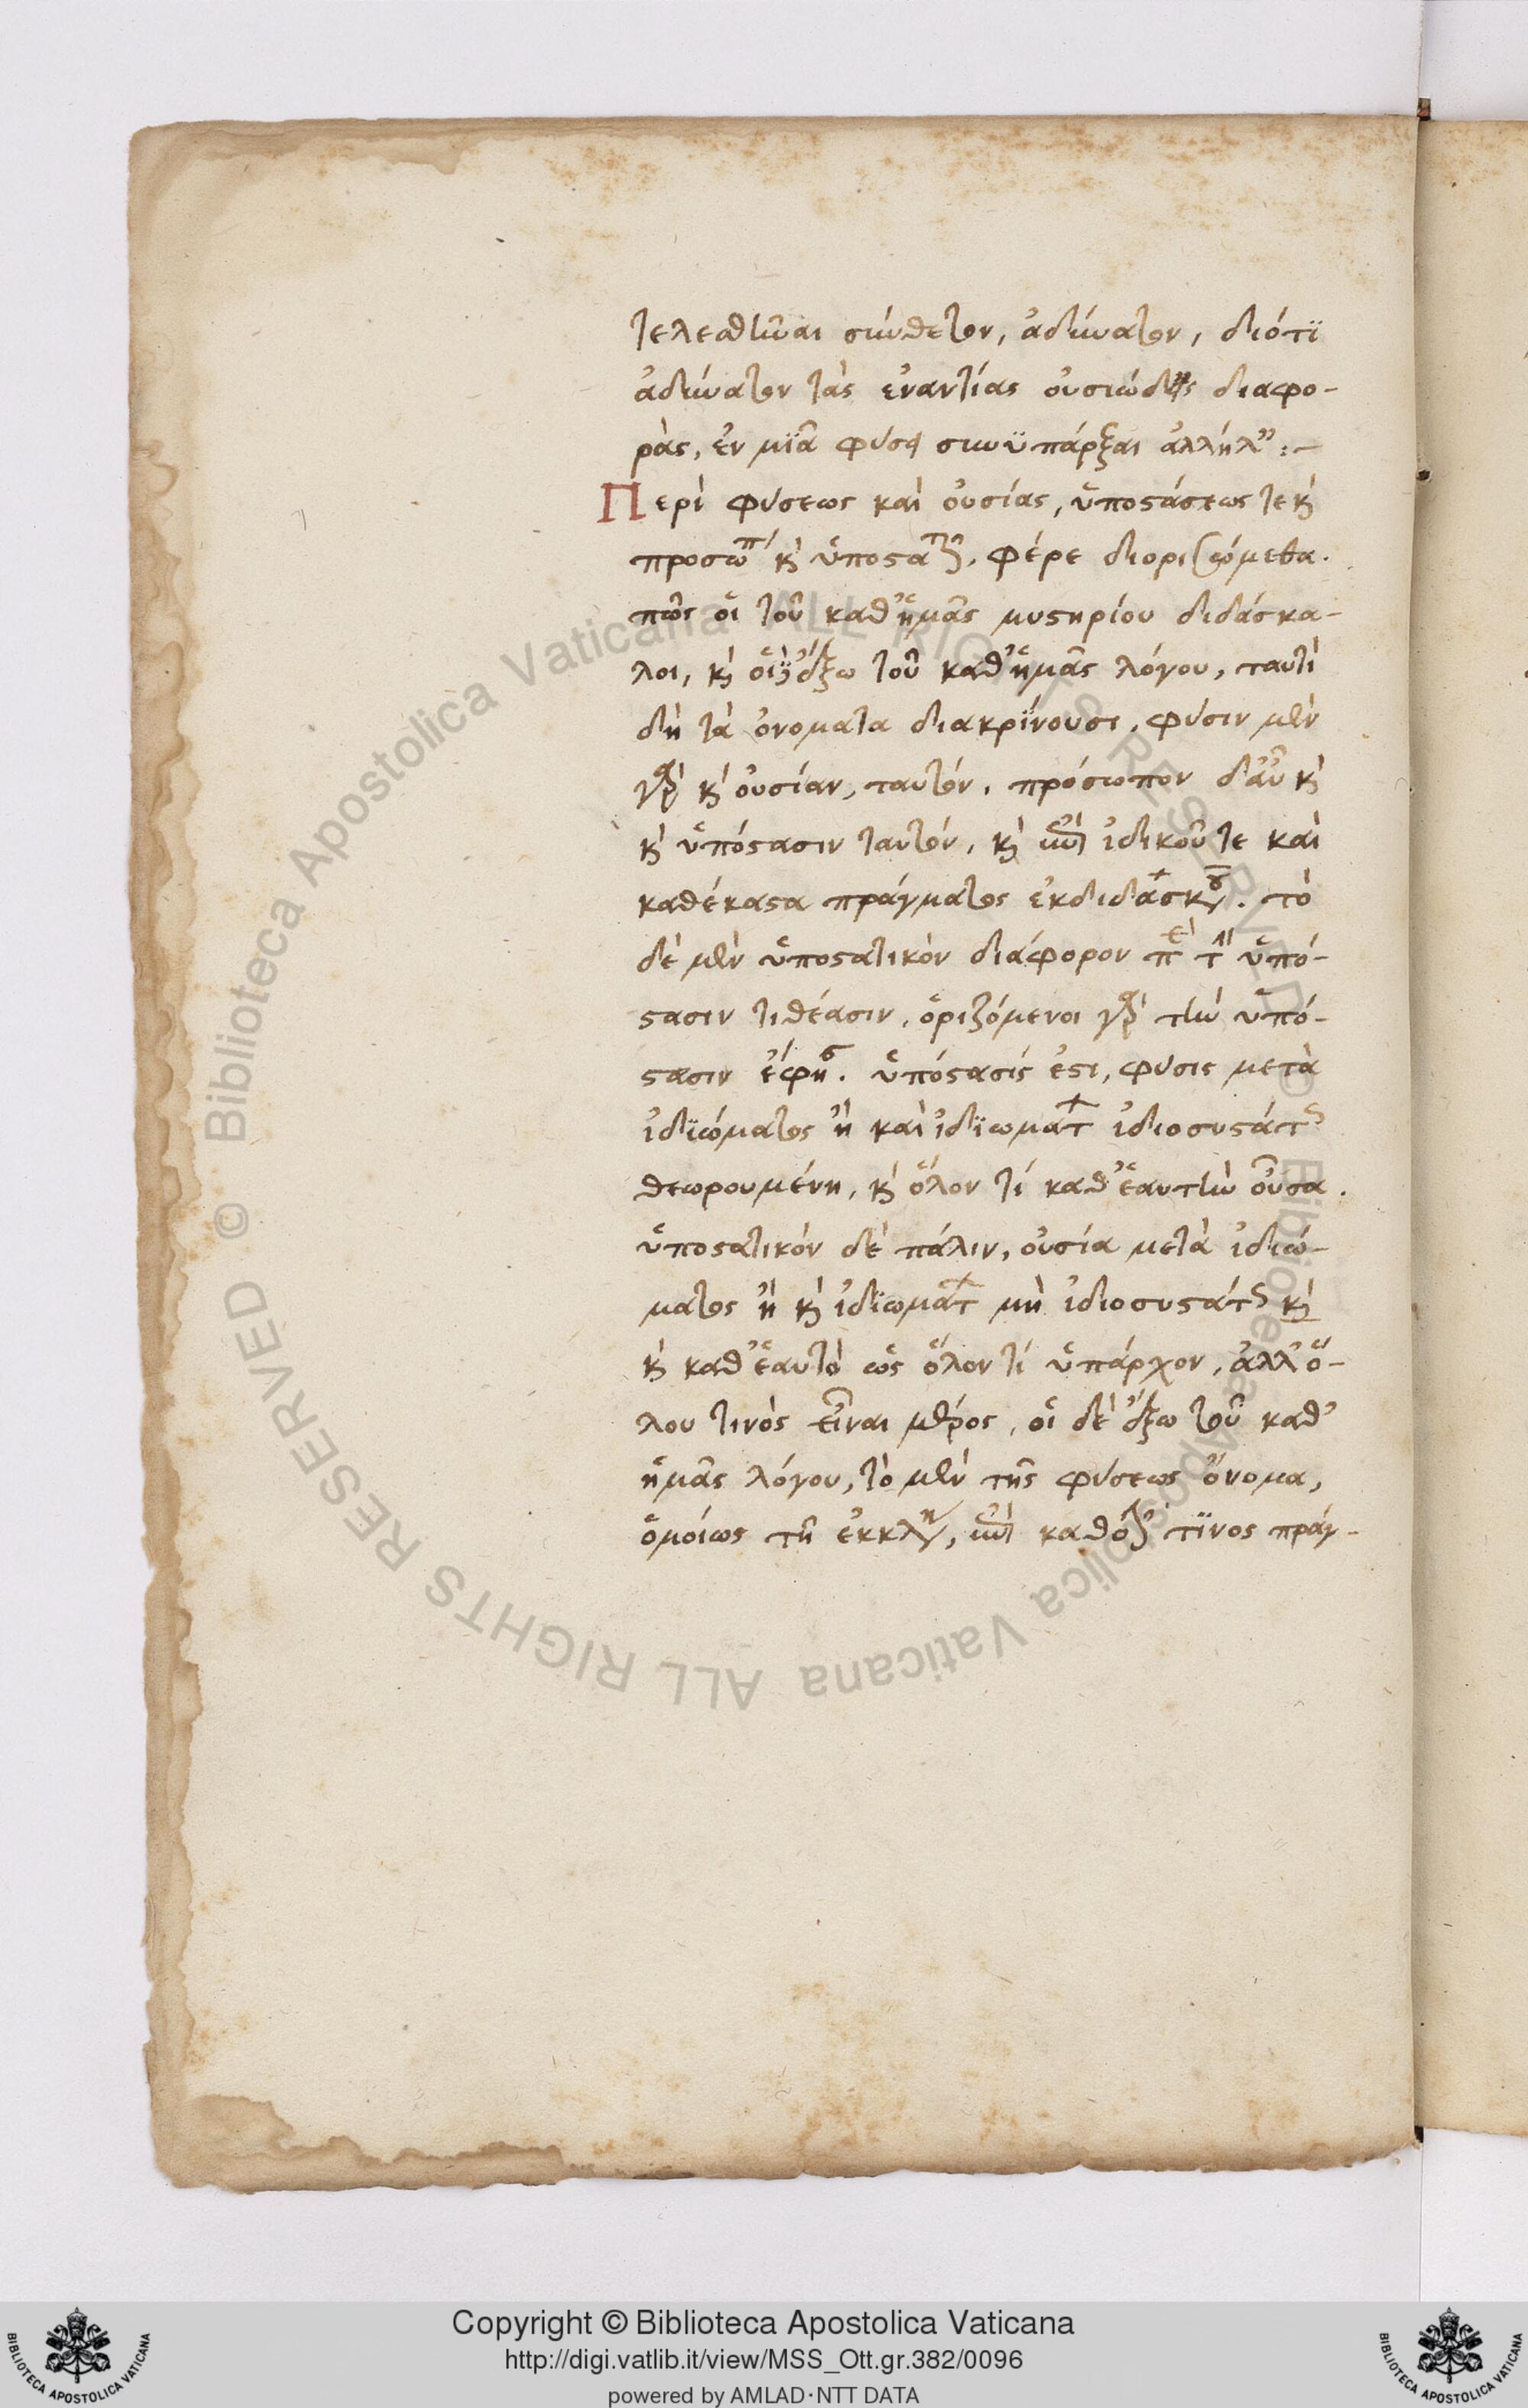 τελεσθῆναι σύνθετον, ἀδύνατον, διότϊ
ἀδύνατον τὰς ἐναντίας οὐσιώδεις διαφο-
ρὰς, ἐν μϊᾶ φύσει συνϋπάρξαι ἀλλήλ:-
Περὶ φύσεως καὶ οὐσίας, ὑποστάσεώς τε κὶ
προσώπ κὶ ὑποστα. φέρε διορισώμεθα.
πῶς οἱ τοῦ καθ' ἡμᾶς μυστηρίου διδάσκα-
λοι, κὶ οἱ ἔξω τοῦ καθ' ἡμᾶς λόγου, ταυτὶ
δὴ τὰ ὀνοματα διακρϊνουσι. φύσιν μὲν
γὰρ κὶ οὐσίαν, ταυτόν. πρόσωπον δ' αὖ κὶ
κὶ ὑπόστασιν ταυτόν, κὶ ἰδικοῦ τε καὶ
καθέκαστα πράγματος ἐκδιδάσκ. τὸ
δέ μὲν ὑποστατικὸν διάφορον π τ ὑπό-
στασιν τιθέασιν. ὁριζόμενοι γὰρ τὴν ὑπό-
στασιν ἔφησ. ὑπόστασίς ἐστι, φύσις μετὰ
ἰδϊώματος ἢ καὶ ἰδϊωματ ἰδιοσυστάτ
θεωρουμένη, κὶ ὅλον τί καθ' ἑαυτὴν οὖσα.
ὑποστατικόν δὲ πάλιν, οὐσία μετὰ ἰδιώ-
ματος ἢ κὶ ἰδϊωμάτ μὴ ἰδιοσυστάτ κὶ
κὶ καθ' ἑαυτὸ ὡς ὅλον τί ὑπάρχον, ἀλλ' ὅ-
λου τινὸς εἶναι μέρος. οἱ δὲ ἔξω τοῦ καθ'
ἡμᾶς λόγου, τὸ μὲν τῆς φύσεως ὄνομα,
ὁμοίως τῆ ἐκκλη, καθόλ τϊνος πράγ-
Copyright © Biblioteca Apostolica Vaticana
http://digi.vatlib.it/view/MSS_Ott.gr.382/0096
powered by AMLAD·NTT DATA